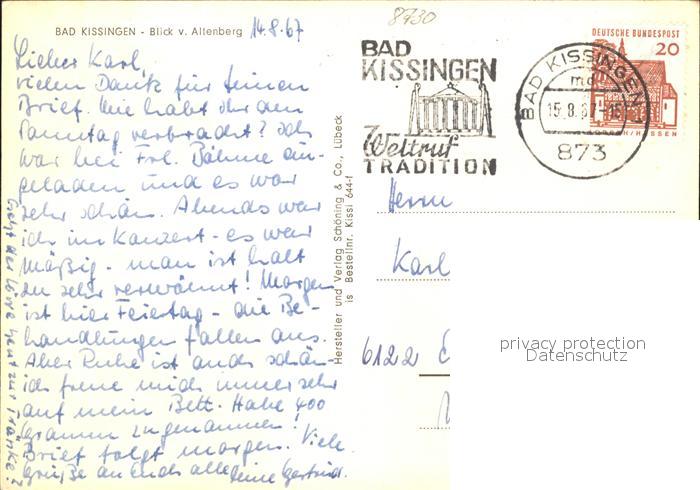 8730
BAD KISSINGEN - Blick v. Altenberg 14.8.67
Lieber Karl,
vielen Dank für Deinen
Brief. Wie habt Ihr den
Sonntag verbracht? Ich
war bei Frl. Böhme ein-
geladen und es war
sehr schön. Abends war
ich im Konzert - es war
mäßig - man ist halt
zu sehr verwöhnt! Morgen
ist hier Feiertag - die Be-
handlungen fallen aus.
Aber Ruhe ist auch schön -
ich freue mich immer sehr
auf mein Bett. Habe 400
Gramm zugenommen!
Brief folgt morgen. Viele
Grüße an Euch alle Deine Gertrud.
Geht der heut zur Tränke?
Hersteller und Verlag Schöning & Co., Lübeck
is Bestellnr. Kissi 644-I
BAD
KISSINGEN
Weltruf
TRADITION
BAD KISSINGEN
md
15.8.67-15
873
DEUTSCHE BUNDESPOST
20
HESSEN
Herrn
Karl
6122
privacy protection
Datenschutz